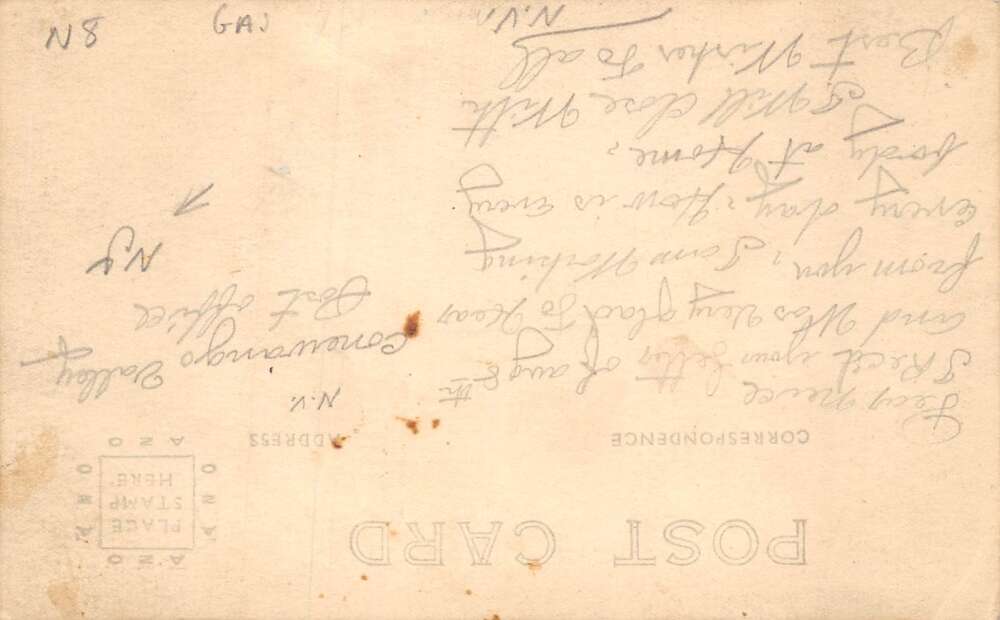 POST CARD
CORRESPONDENCE
ADDRESS
PLACE
STAMP
HERE
AZO
AZO
AZO
AZO
niece
I Recd your letter of aug 8th
and Was very glad to Hear
from you, I am Working
every day, How is Every
body at Home,
I Will close With
Best Wishes To all
N.V.
Conewango Valley
Post office
N.Y.
N.V.
N8
GAJ